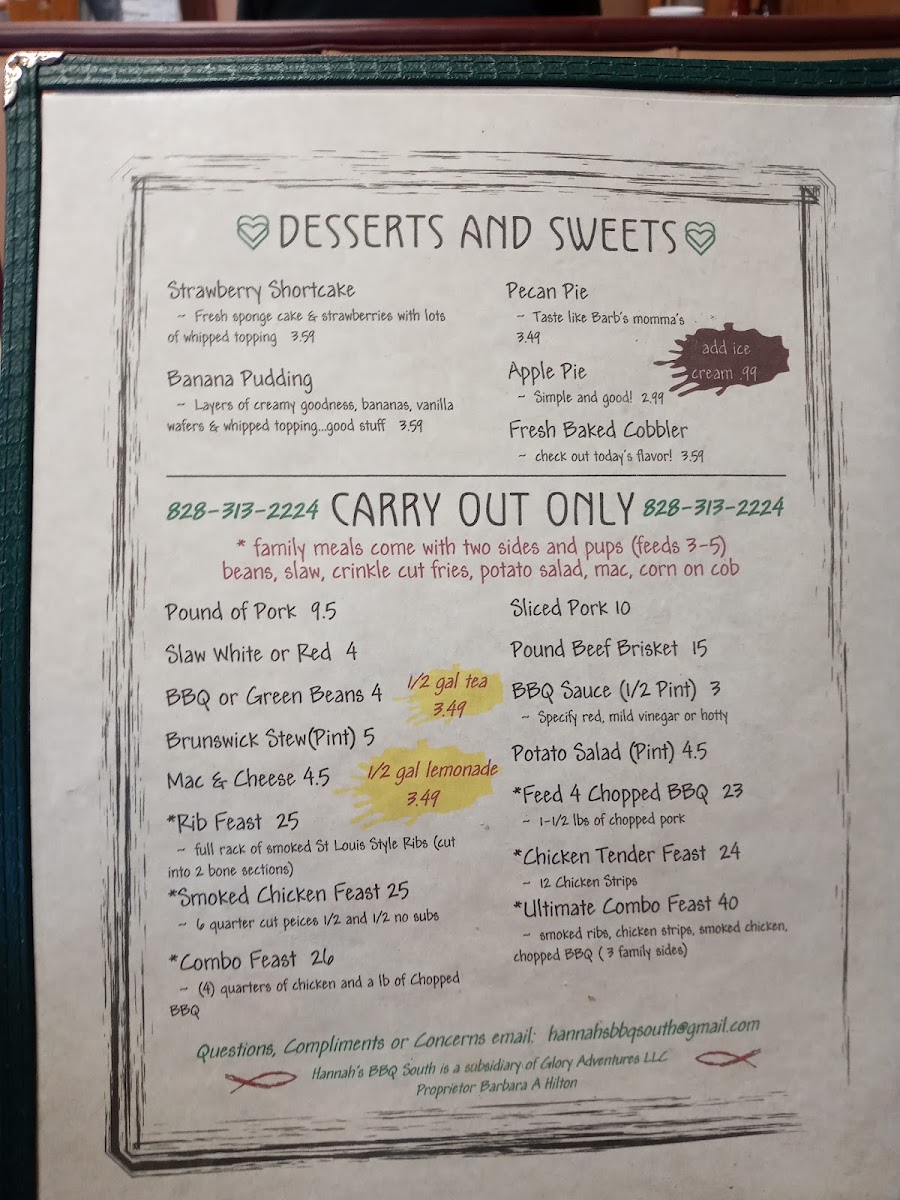 DESSERTS AND SWEETS
Strawberry Shortcake
~ Fresh sponge cake & strawberries with lots
of whipped topping 3.59
Banana Pudding
~ Layers of creamy goodness, bananas, vanilla
wafers & whipped topping...good stuff 3.59
Pecan Pie
~ Taste like Barb's momma's
3.49
add ice
cream .99
Apple Pie
~ Simple and good! 2.99
Fresh Baked Cobbler
~ check out today's flavor! 3.59
828-313-2224 CARRY OUT ONLY 828-313-2224
* family meals come with two sides and pups (feeds 3-5)
beans, slaw, crinkle cut fries, potato salad, mac, corn on cob
Pound of Pork 9.5
Slaw White or Red 4
BBQ or Green Beans 4
1/2 gal tea
3.49
Brunswick Stew(Pint) 5
Mac & Cheese 4.5
1/2 gal lemonade
3.49
*Rib Feast 25
~ full rack of smoked St Louis Style Ribs (cut
into 2 bone sections)
*Smoked Chicken Feast 25
~ 6 quarter cut peices 1/2 and 1/2 no subs
*Combo Feast 26
~ (4) quarters of chicken and a lb of Chopped
BBQ
Sliced Pork 10
Pound Beef Brisket 15
BBQ Sauce (1/2 Pint) 3
~ Specify red, mild vinegar or hotty
Potato Salad (Pint) 4.5
*Feed 4 Chopped BBQ 23
~ 1-1/2 lbs of chopped pork
*Chicken Tender Feast 24
~ 12 Chicken Strips
*Ultimate Combo Feast 40
~ smoked ribs, chicken strips, smoked chicken,
chopped BBQ ( 3 family sides)
Questions, Compliments or Concerns email: hannahsbbqsouth@gmail.com
Hannah's BBQ South is a subsidiary of Glory Adventures LLC
Proprietor Barbara A Hilton